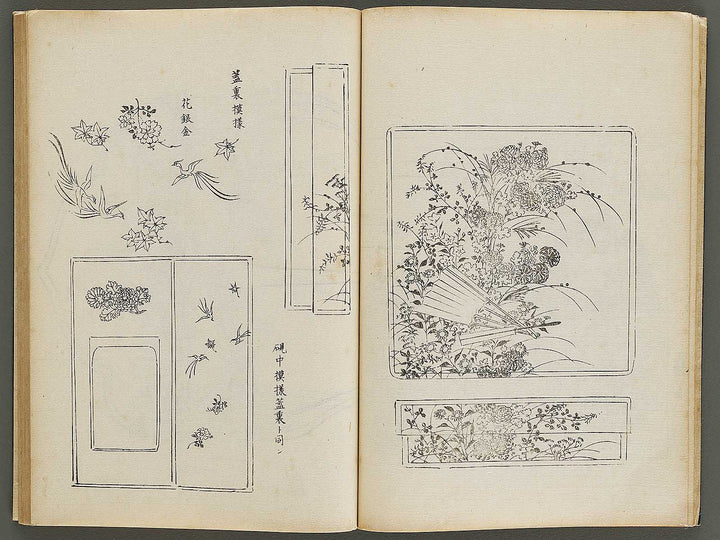 蓋裏摸様
花銀金
硯中摸様蓋裏ト同シ